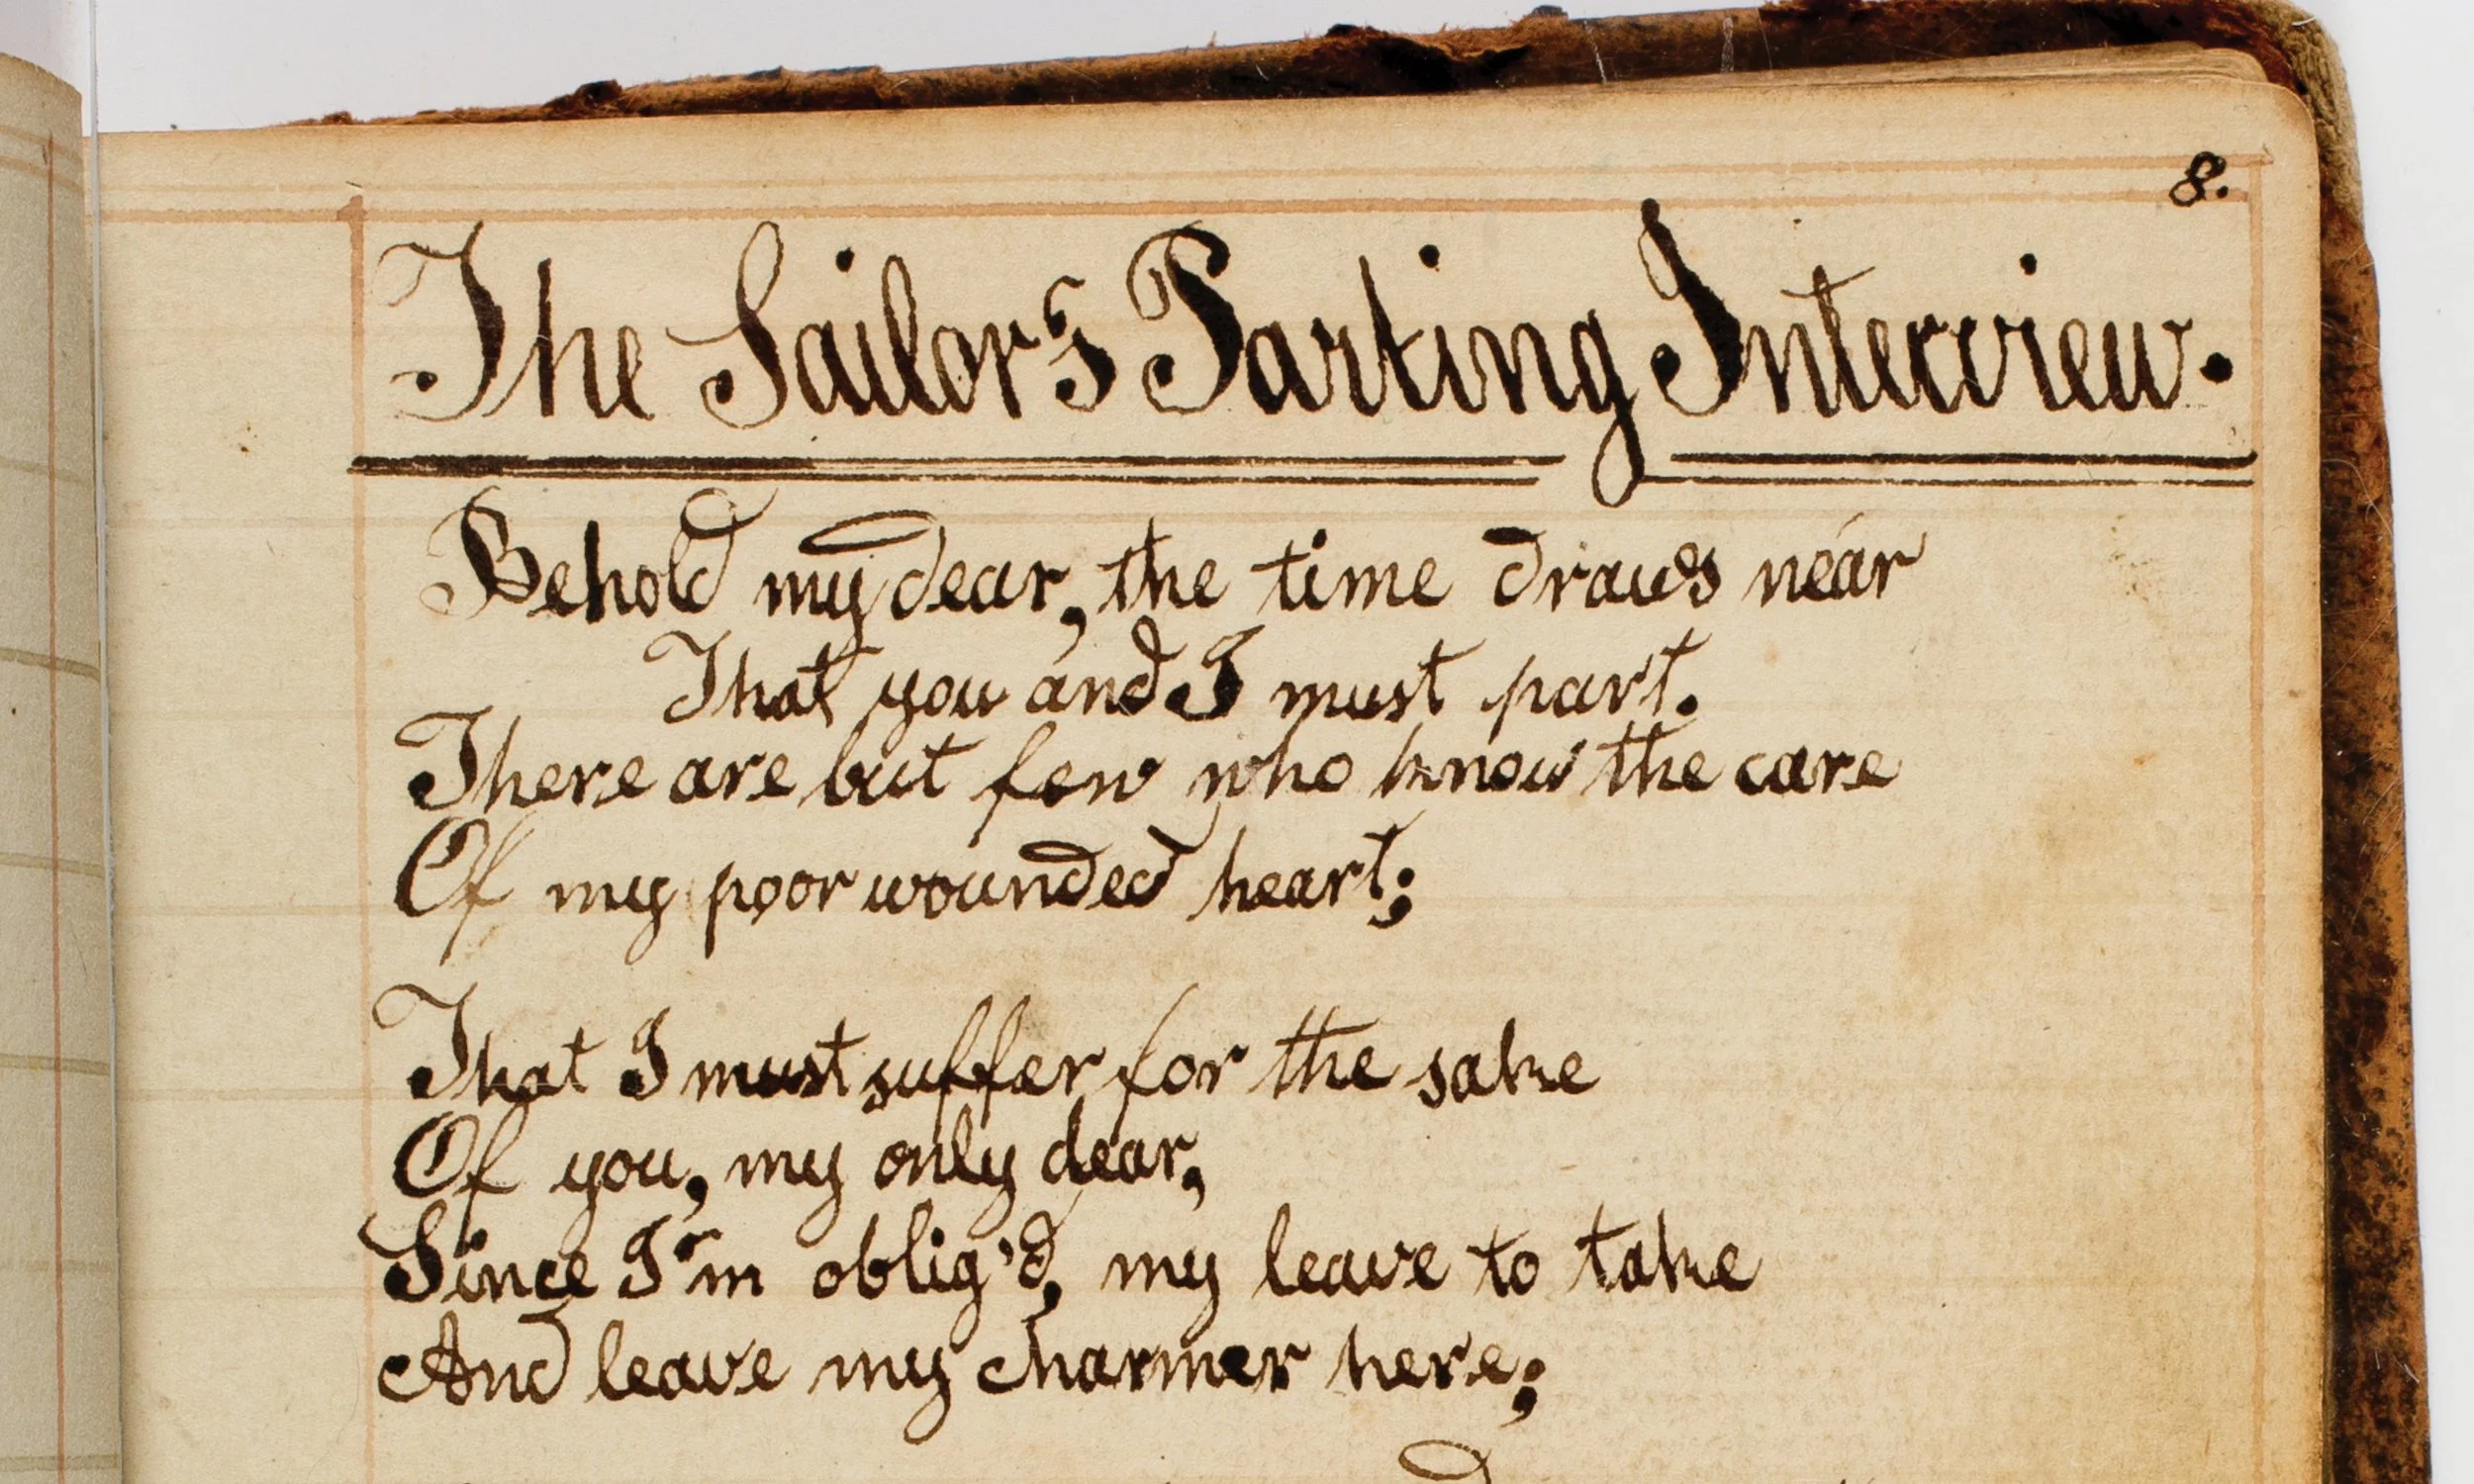 8.
The Sailor's Parting Interview.
Behold my dear, the time draws near
That you and I must part.
There are but few who know the care
Of my poor wounded heart;
That I must suffer for the sake
Of you, my only dear,
Since I'm oblig'd, my leave to take
And leave my charmer here;